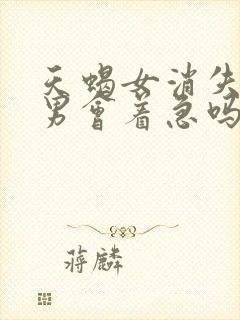 天蝎女消失
男会着急吗
蒋麟